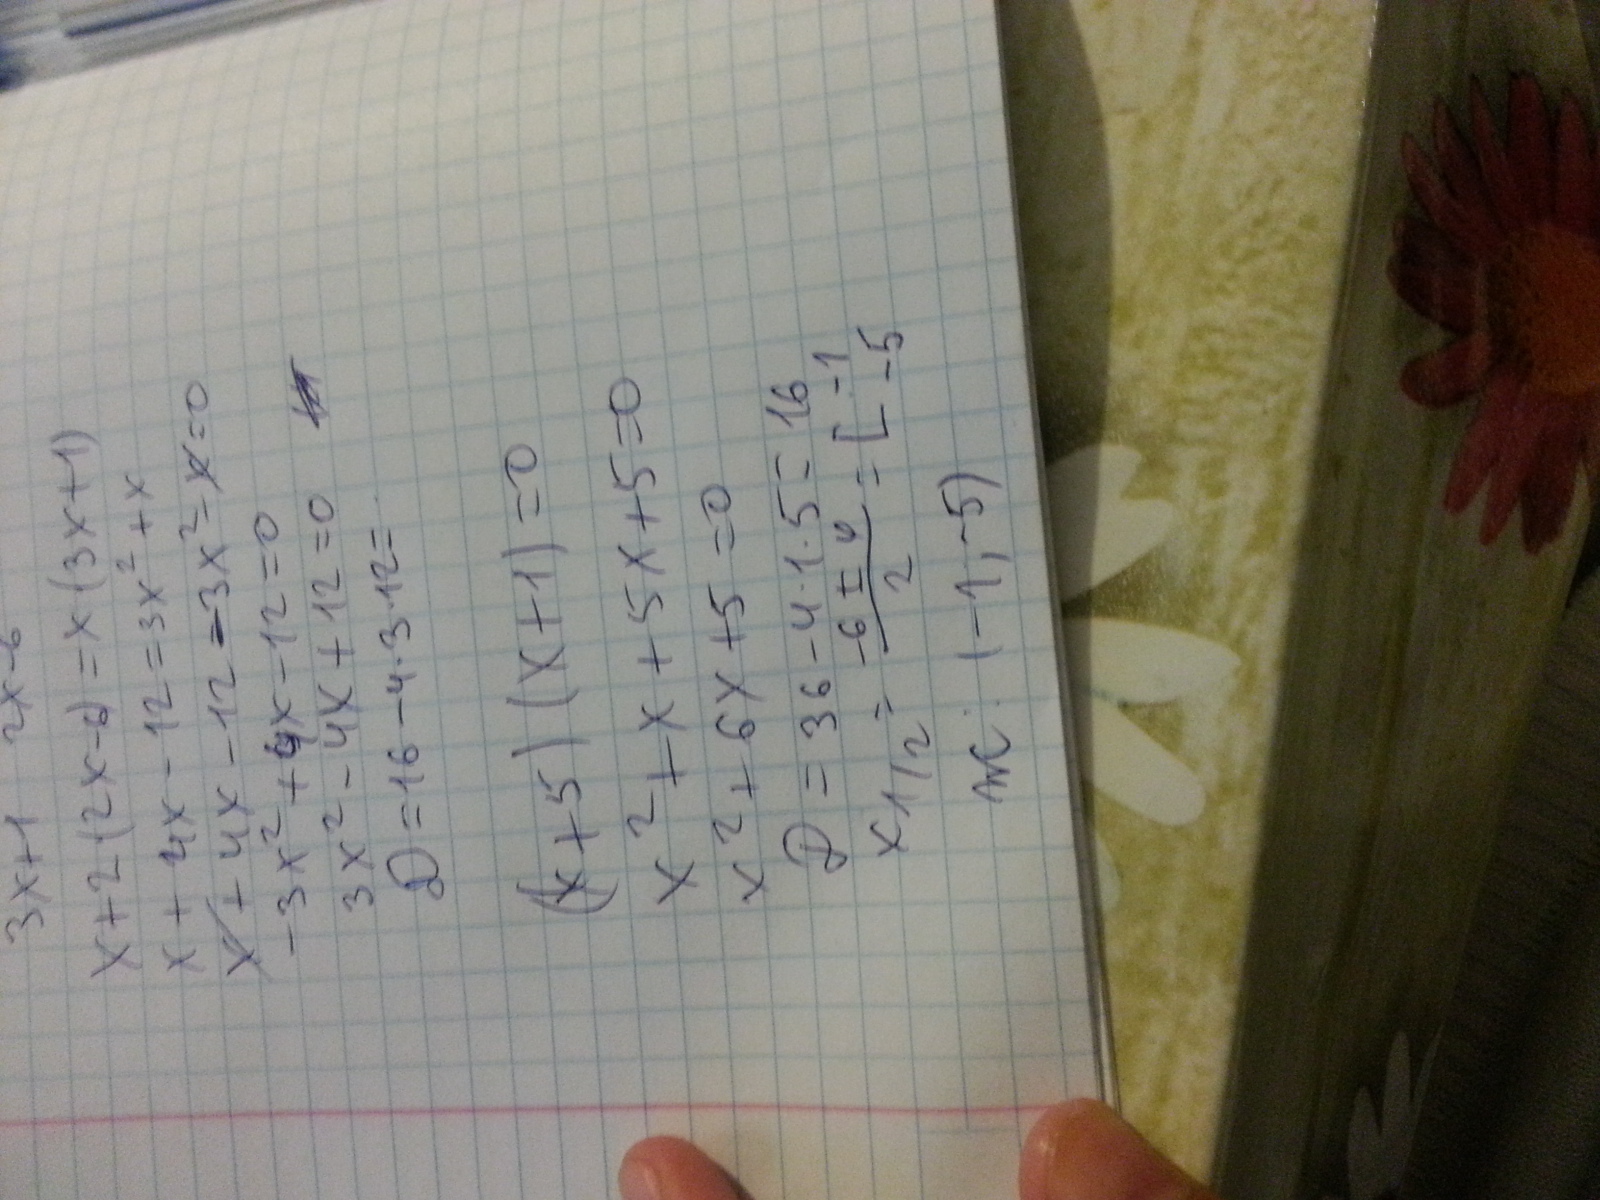 3x+1 2x-6
x+2(2x-6)=x(3x+1)
x+4x-12=3x²+x
x+4x-12-3x²-x=0
-3x²+4x-12=0
3x²-4x+12=0
D=16-4·3·12=
(x+5)(x+1)=0
x²+x+5x+5=0
x²+6x+5=0
D=36-4·1·5=16
x1/2=-6±4/2=[-1 -5
(-1;-5)